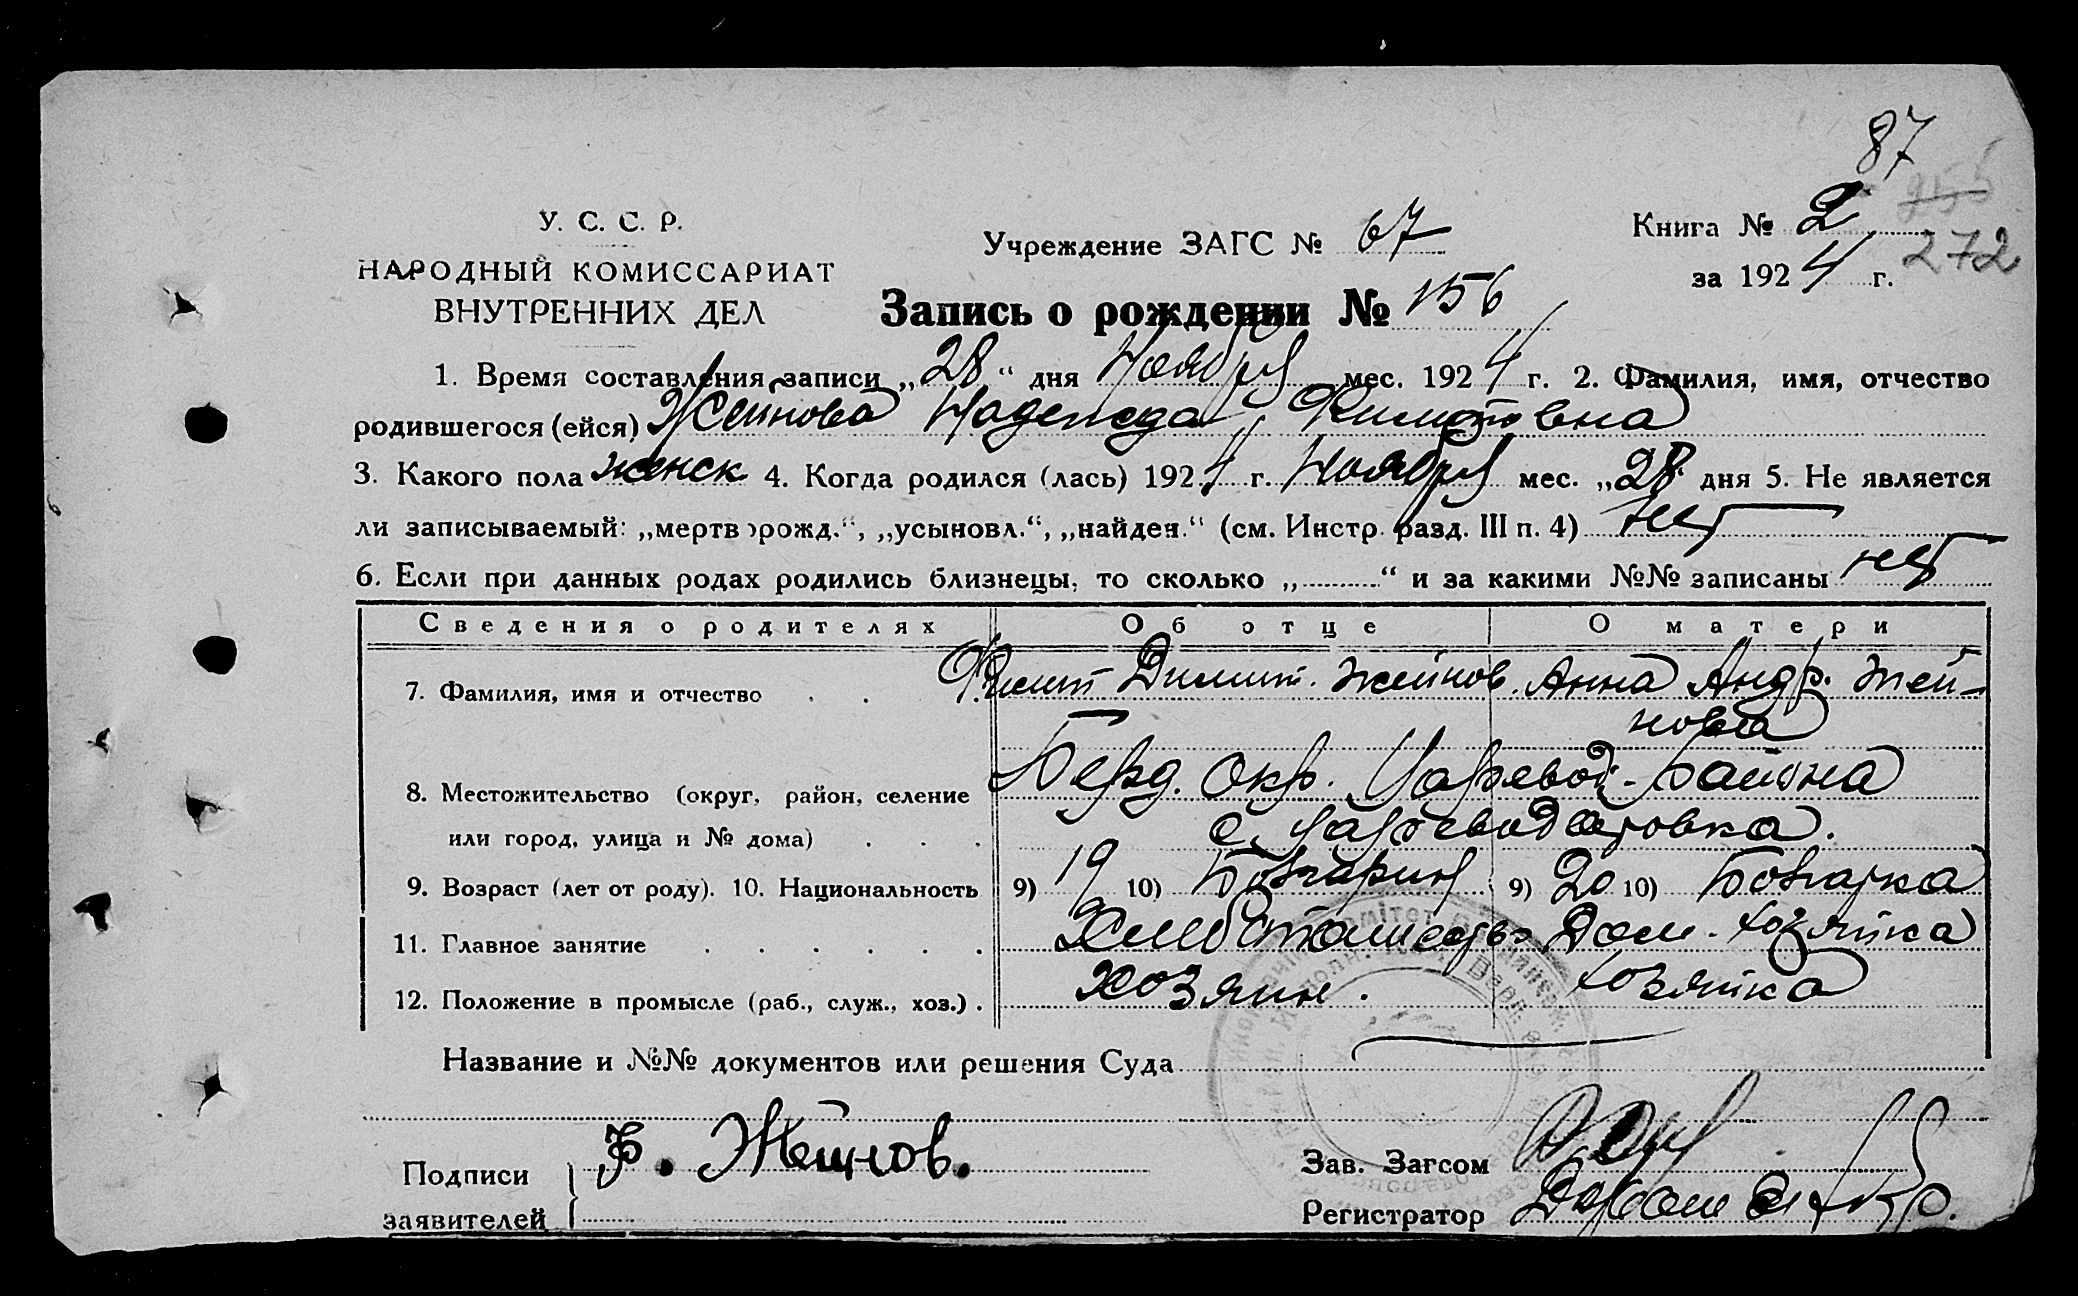 87
У. С. С. Р.
НАРОДНЫЙ КОМИССАРИАТ
ВНУТРЕННИХ ДЕЛ
Учреждение ЗАГС № 67
Книга № 2
за 1924 г.
272
Запись о рождении № 156
1. Время составления записи „28“ дня Ноября мес. 1924 г. 2. Фамилия, имя, отчество
родившегося (ейся) Жейнова Надежда
3. Какого пола женск 4. Когда родился (лась) 1924 г. Ноября мес. „28 дня 5. Не является
ли записываемый: „мертворожд.“, „усыновл.“, „найден.“ (см. Инстр. разд. III п. 4) нет
6. Если при данных родах родились близнецы, то сколько „..........“ и за какими №№ записаны нет
Сведения о родителях Об отце О матери
7. Фамилия, имя и отчество . . Филип Димит. Жейнов. Анна Андр. Жей-
нова
8. Местожительство (округ, район, селение Берд. Окр. Царевод. района
или город, улица и № дома) . . . с. Цареводаровка.
9. Возраст (лет от роду). 10. Национальность 9) 19 10) Болгарин 9) 20 10) Болгарка
11. Главное занятие . . . . . . Хлебопашество Дом. хозяйка
12. Положение в промысле (раб., служ., хоз.) . хозяин. хозяйка
Название и №№ документов или решения Суда
Подписи
заявителей
Ф. Жейнов.
Зав. Загсом
Регистратор